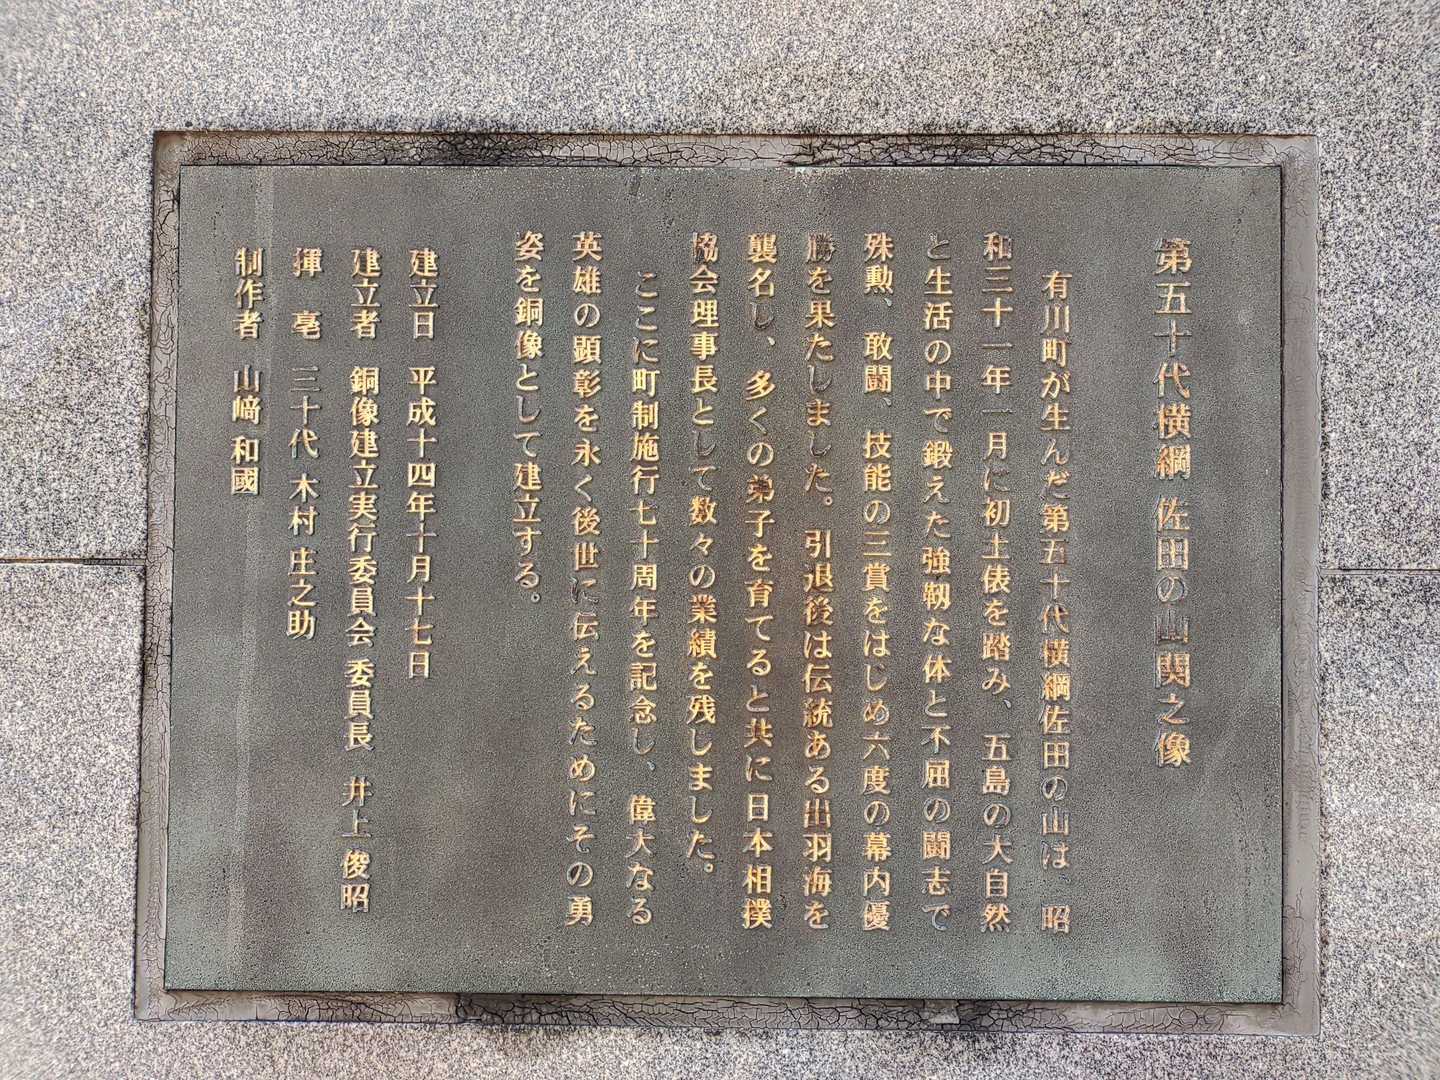 第五十代横綱 佐田の山関之像
有川町が生んだ第五十代横綱佐田の山は、昭
和三十一年一月に初土俵を踏み、五島の大自然
と生活の中で鍛えた強靱な体と不屈の闘志で
殊勲、敢闘、技能の三賞をはじめ六度の幕内優
勝を果たしました。引退後は伝統ある出羽海を
襲名し、多くの弟子を育てると共に日本相撲
協会理事長として数々の業績を残しました。
ここに町制施行七十周年を記念し、偉大なる
英雄の顕彰を永く後世に伝えるためにその勇
姿を銅像として建立する。
建立日 平成十四年十月十七日
建立者 銅像建立実行委員会 委員長 井上 俊昭
揮毫 三十代 木村 庄之助
制作者 山﨑 和國